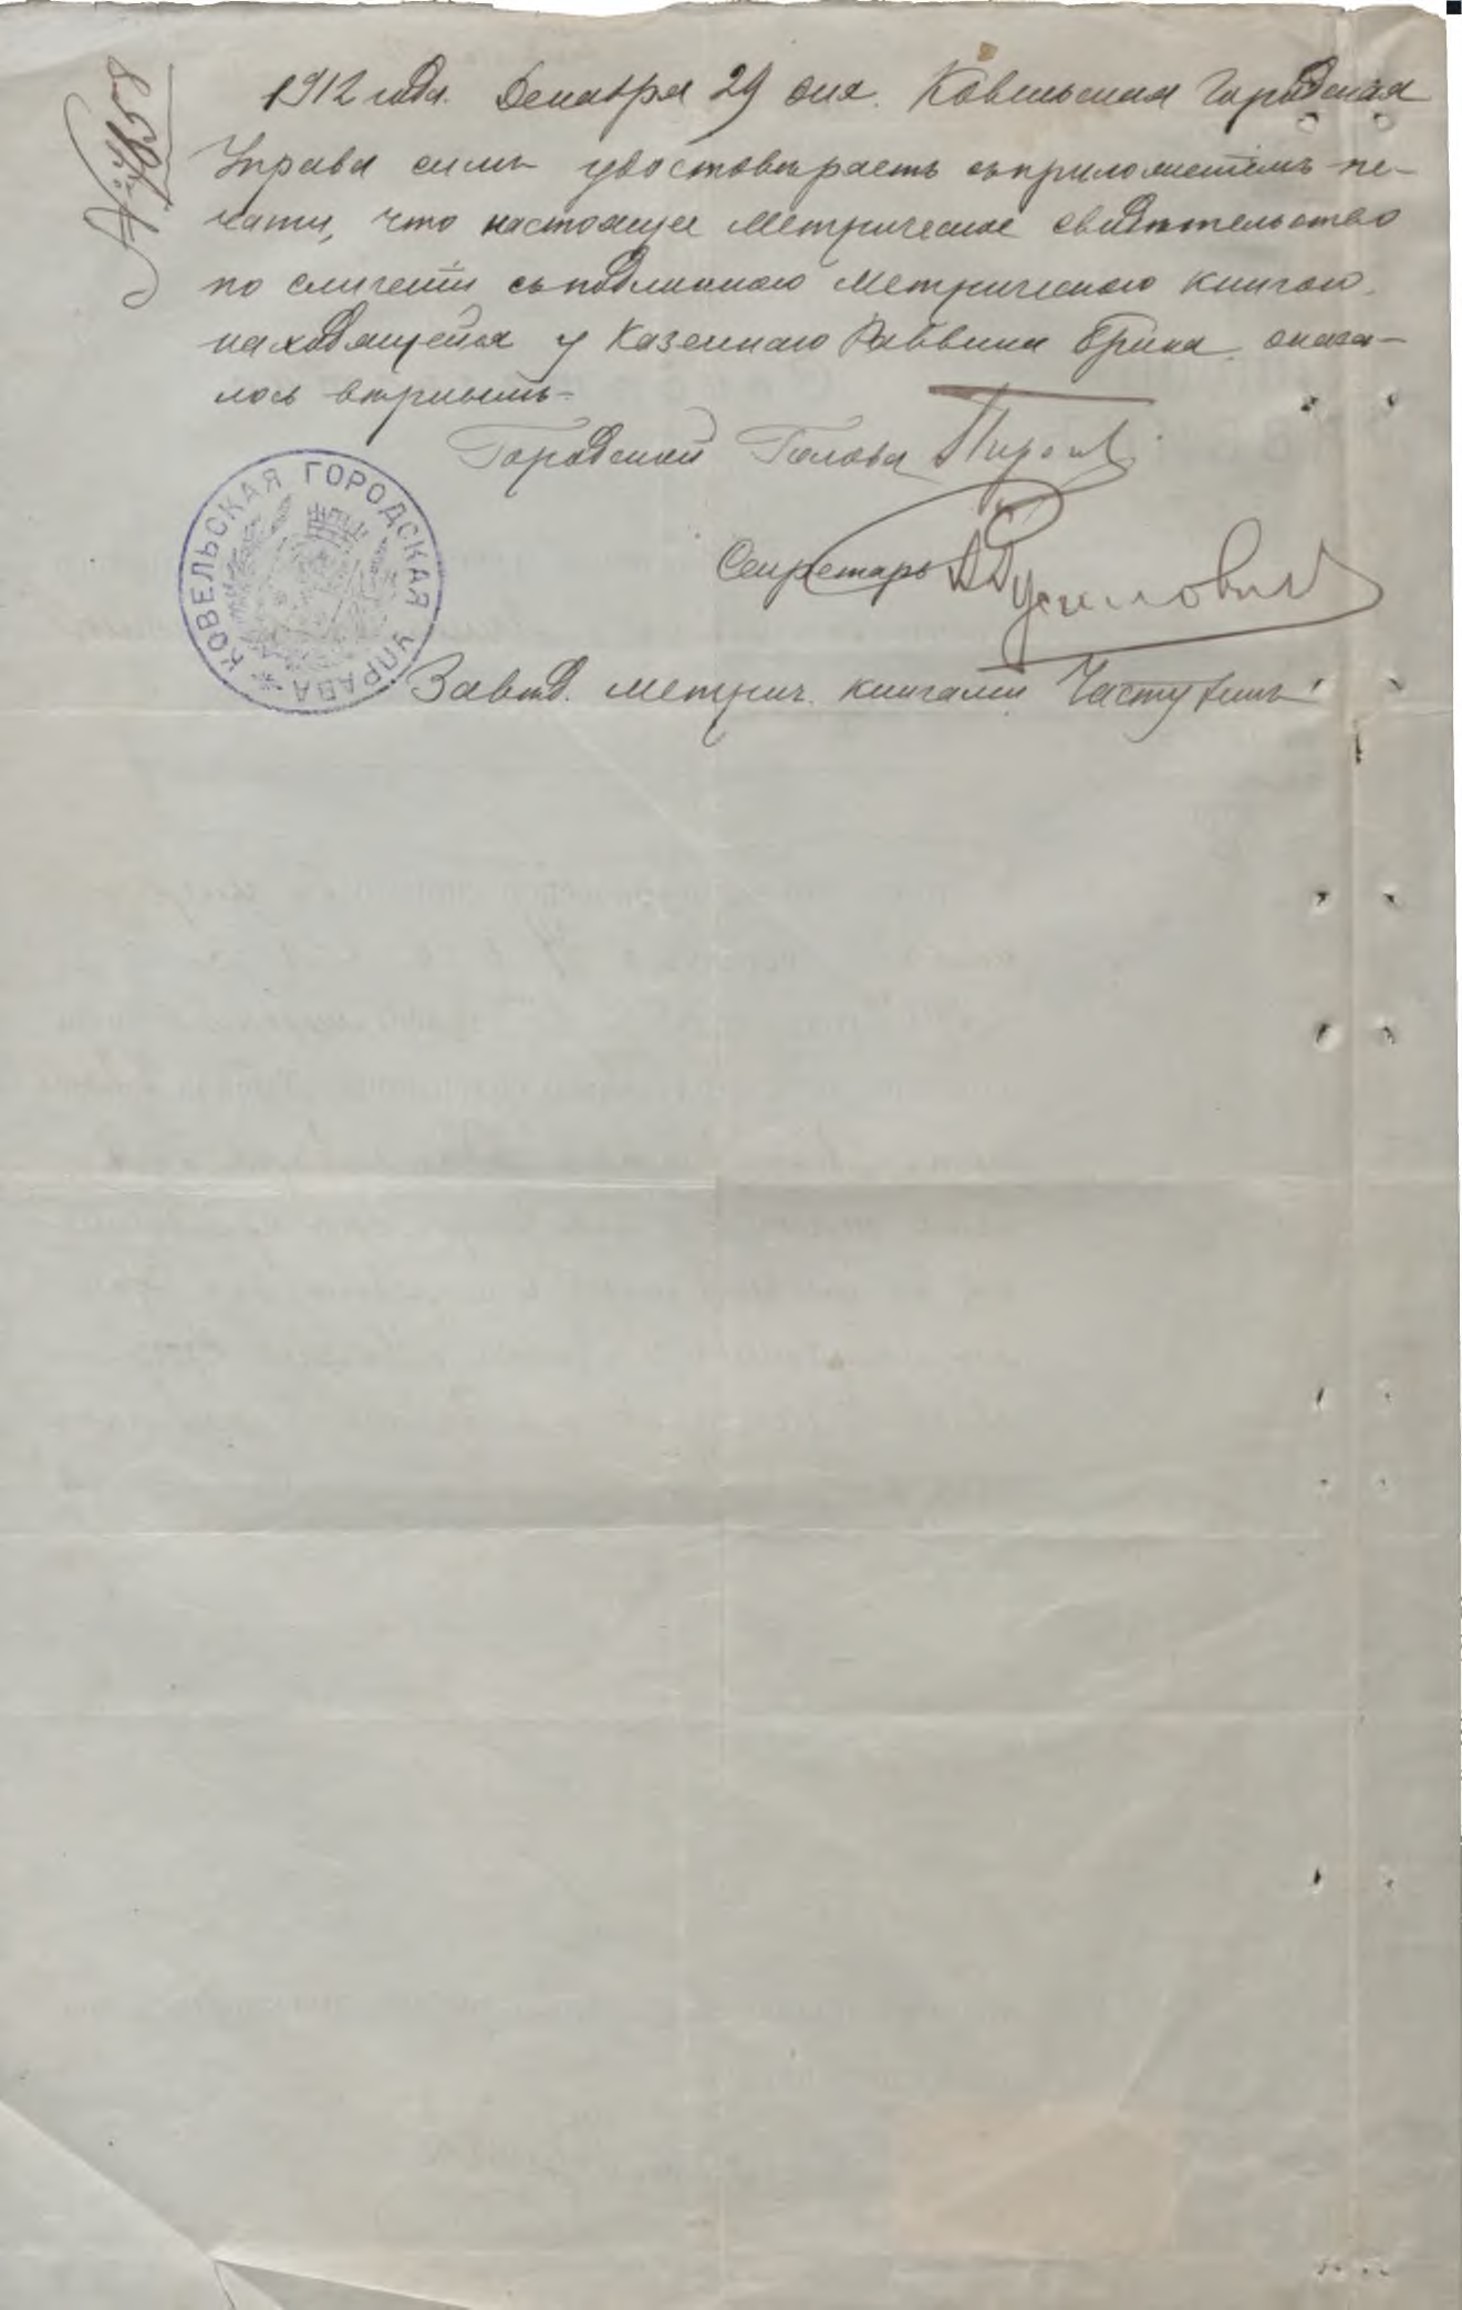 № 7858
1912 года. Декабря 29 дня. Ковельская Городская
Управа симъ удостовѣряетъ съ приложеніемъ пе-
чати, что настоящее Метрическое свидѣтельство
по сличеніи съ подлинною Метрическою книгою,
находящейся у Казеннаго Раввина Ерина, оказа-
лось вѣрнымъ.
Городской Голова
Секретарь
КОВЕЛЬСКАЯ ГОРОДСКАЯ УПРАВА
Завѣд. метрич. книгами